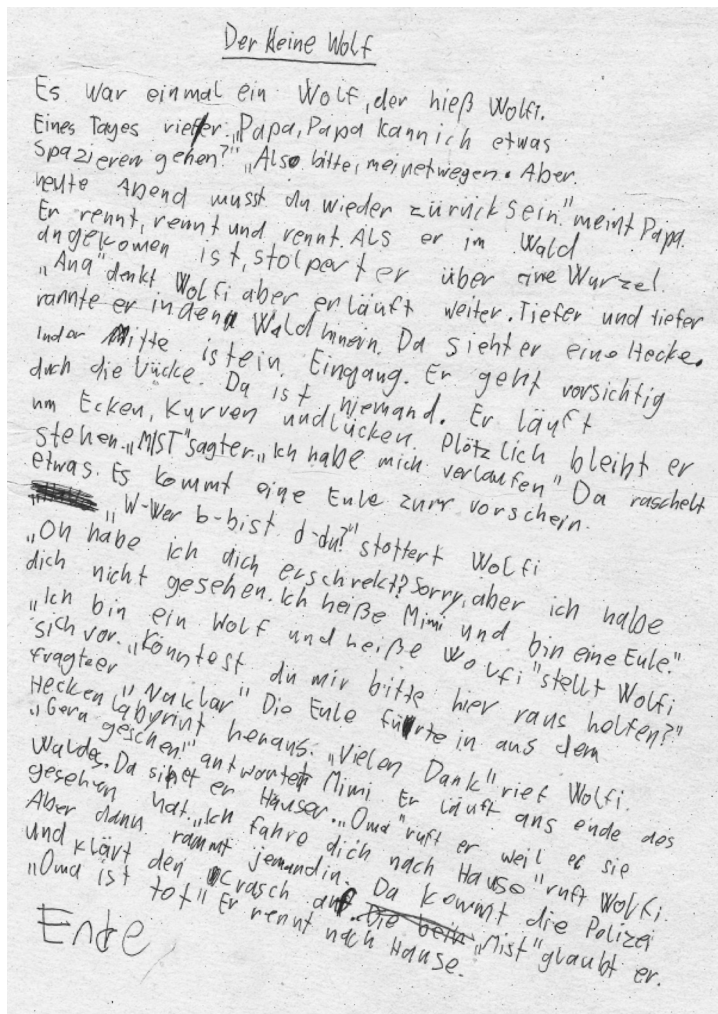 Der kleine Wolf
Es war einmal ein Wolf, der hieß Wolfi.
Eines Tages rief er „Papa, Papa kann ich etwas
Spazieren gehen?" „Also bitte, meinetwegen. Aber
heute Abend musst du wieder zürück sein." meint Papa.
Er rennt, rennt und rennt. Als er im Wald
angekomen ist, stolpert er über eine Wurzel.
„Aua" denkt Wolfi aber er läuft weiter. Tiefer und tiefer
rannte er in den Wald hinein. Da sieht er eine Hecke.
In der Mitte ist ein Eingang. Er geht vorsichtig
duch die Lücke. Da ist niemand. Er läuft
um Ecken, Kurven und Lücken. Plötzlich bleibt er
stehen. „MIST" sagt er „Ich habe mich verlaufen" Da raschelt
etwas. Es kommt eine Eule zum vorschein.
„W-Wer b-bist d-du?" stottert Wolfi
„Oh habe ich dich erschrekt? Sorry, aber ich habe
dich nicht gesehen. Ich heiße Mimi und bin eine Eule."
„Ich bin ein Wolf und heiße Wolfi" stellt Wolfi
sich vor. „Könntest du mir bitte hier raus helfen?"
fragt er „Naklar" Die Eule fürte in aus dem
Hecken labyrint heraus. „Vielen Dank" rief Wolfi.
„Gern geschen!" antwortet Mimi. Er läuft ans ende des
Waldes. Da sihet er Häuser. „Oma" ruft er weil er sie
gesehen hat. „Ich fahre dich nach Hause" ruft Wolfi.
Aber dann rammt jemand in. Da kommt die Polizei
und klärt den crasch auf. Die bein „Mist" glaubt er.
„Oma ist tot" Er rennt nach Hause.
Ende